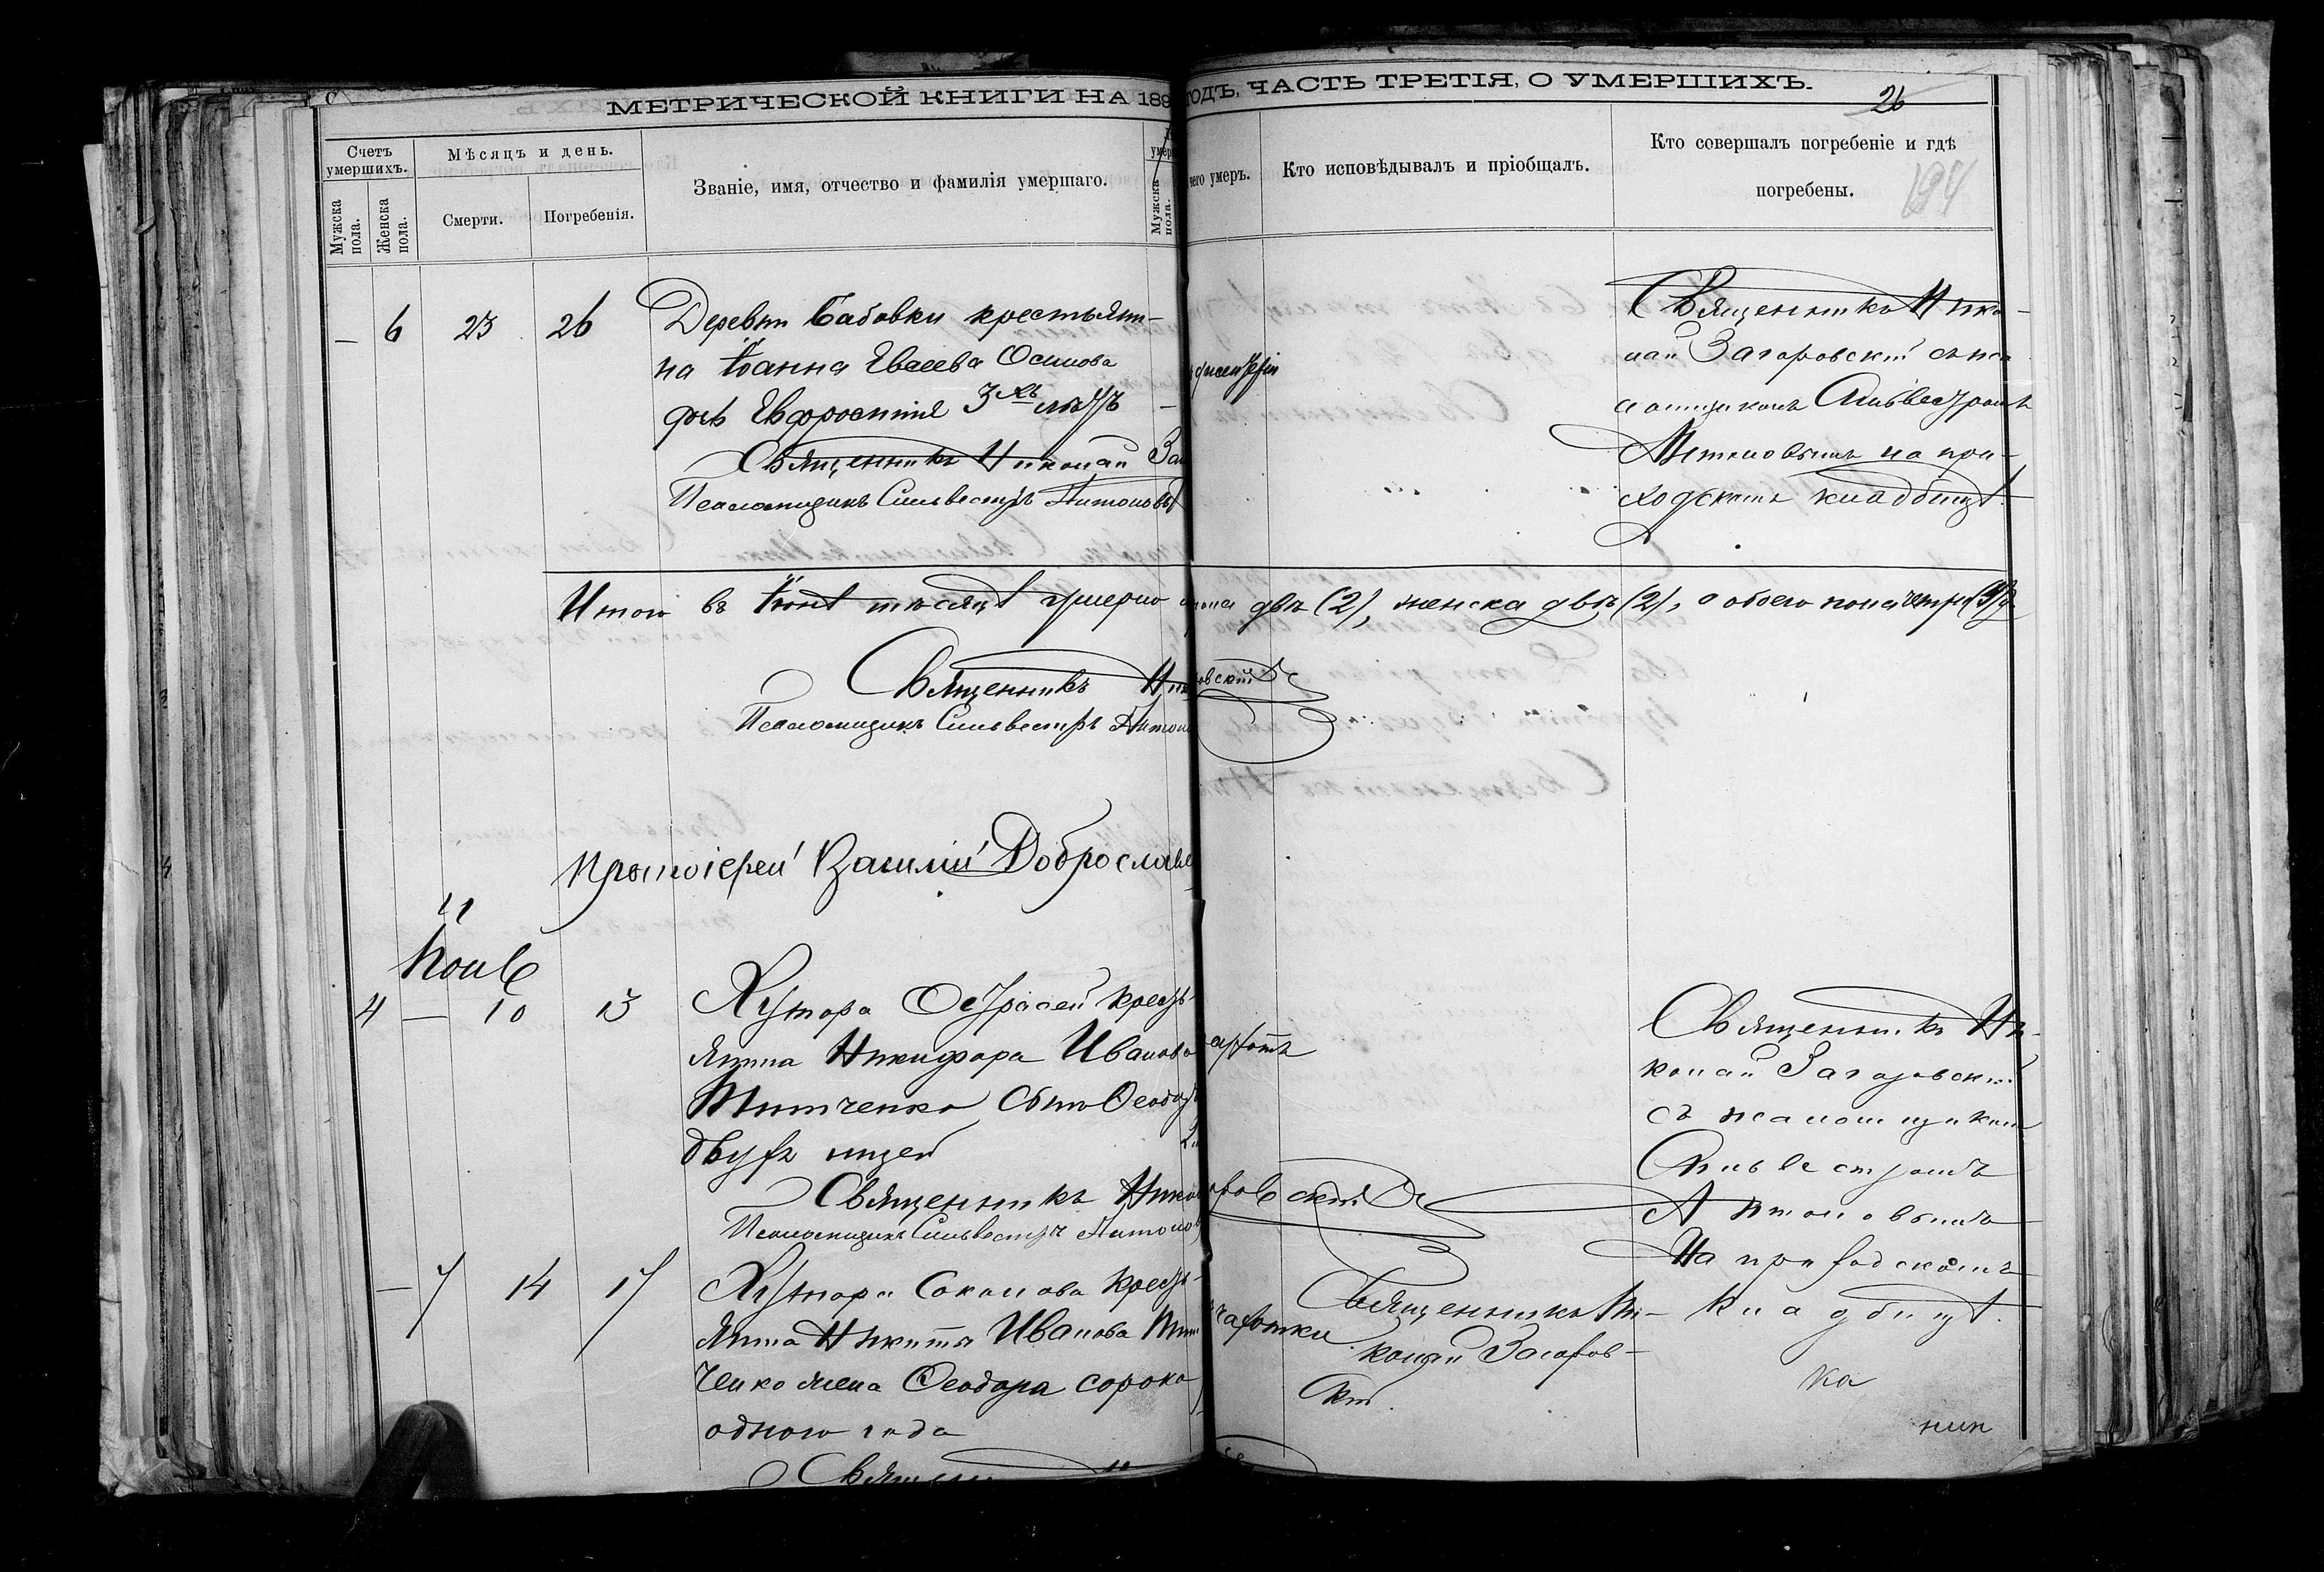 МЕТРИЧЕСКОЙ КНИГИ НА 189
ГОДЪ, ЧАСТЬ ТРЕТІЯ, О УМЕРШИХЪ.
26
194
Счетъ умершихъ.
Мужска пола.
Женска пола.
Мѣсяцъ и день.
Смерти.
Погребенія.
Званіе, имя, отчество и фамилія умершаго.
Мужска пола.
чего умеръ.
Кто исповѣдывалъ и пріобщалъ.
Кто совершалъ погребеніе и гдѣ
погребены.
— 6 23 26 Деревни Бабовки крестьяни-
на Іоанна Евсеева Осипова
дочь Евфросинія 3хъ лѣтъ
Священникъ Николай За
Псаломщикъ Сильвестръ Антоновъ
Священникъ Нико-
лай Загоровскій съ пса
ломщикомъ Сильвестромъ
Антоновымъ на при-
ходскомъ кладбищѣ.
Итого въ Іюнѣ мѣсяцѣ умерло
пола два (2), женска двѣ (2), а обоего пола четыре (4)
Священникъ Ник
овскій
Псаломщикъ Сильвестръ Антон
Протоіерей Василій Доброславс
Іюль
4 — 10 13 Хутора Острасей кресть-
янина Никифора Иванова
Титченко сынъ Ѳеодоръ
двухъ мцей
Священникъ Нико
оровскій
Псаломщикъ Сильвестръ Антонов
Священникъ Ни-
колай Загоровскій
съ псаломщикомъ
Сильвестромъ
Антоновымъ
На приходскомъ
кладбищѣ.
— 7 14 17 Хутора Соколова кресть-
янина Никиты Иванова Тит
ченко жена Ѳеодора сорока
одного года
чахотки
Священникъ Ни-
колай Загоров-
скій.
Священ